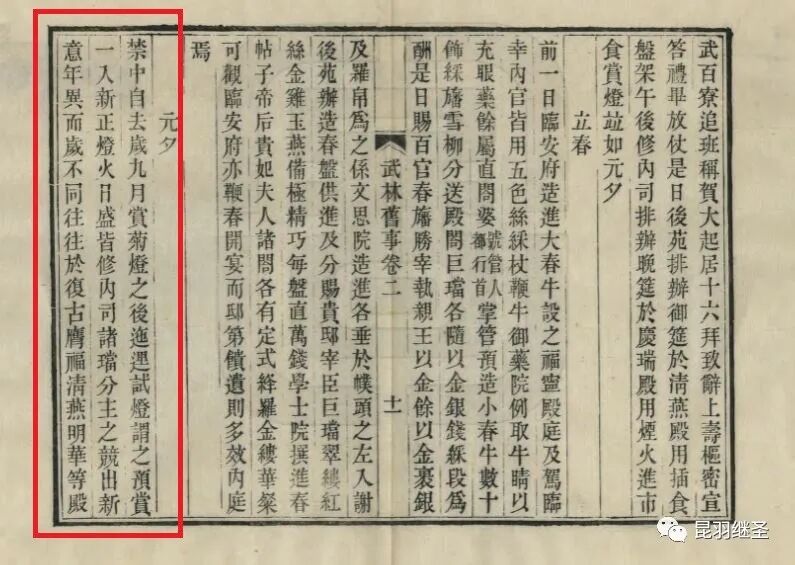 武百寮追班稱賀大起居十六拜致辭上壽樞密宣
答禮畢放仗是日後苑排辦御筵於清燕殿用插食
盤架午後修內司排辦晚筵於慶瑞殿用煙火進市
食賞燈竝如元夕
立春
前一日臨安府造進大春牛設之福寧殿庭及駕臨
幸內官皆用五色絲綵杖鞭牛御藥院例取牛睛以
充眼藥餘屬直閤婆號管人都行首掌管預造小春牛數十
飾綵旛雪柳分送殿閤巨璫各隨以金銀錢綵段為
酬是日賜百官春旛勝宰執親王以金餘以金裹銀
武林舊事卷二 十一
及羅帛為之係文思院造進各垂於幞頭之左入謝
後苑辦造春盤供進及分賜貴邸宰臣巨璫翠縷紅
絲金雞玉燕備極精巧每盤直萬錢學士院撰進春
帖子帝后貴妃夫人諸閤各有定式絳羅金縷華粲
可觀臨安府亦鞭春開宴而邸第饋遺則多效內庭
焉
元夕
禁中自去歲九月賞菊燈之後迤邐試燈謂之預賞
一入新正燈火日盛皆修內司諸璫分主之競出新
意年異而歲不同往往於復古膺福清燕明華等殿
昆羽继圣